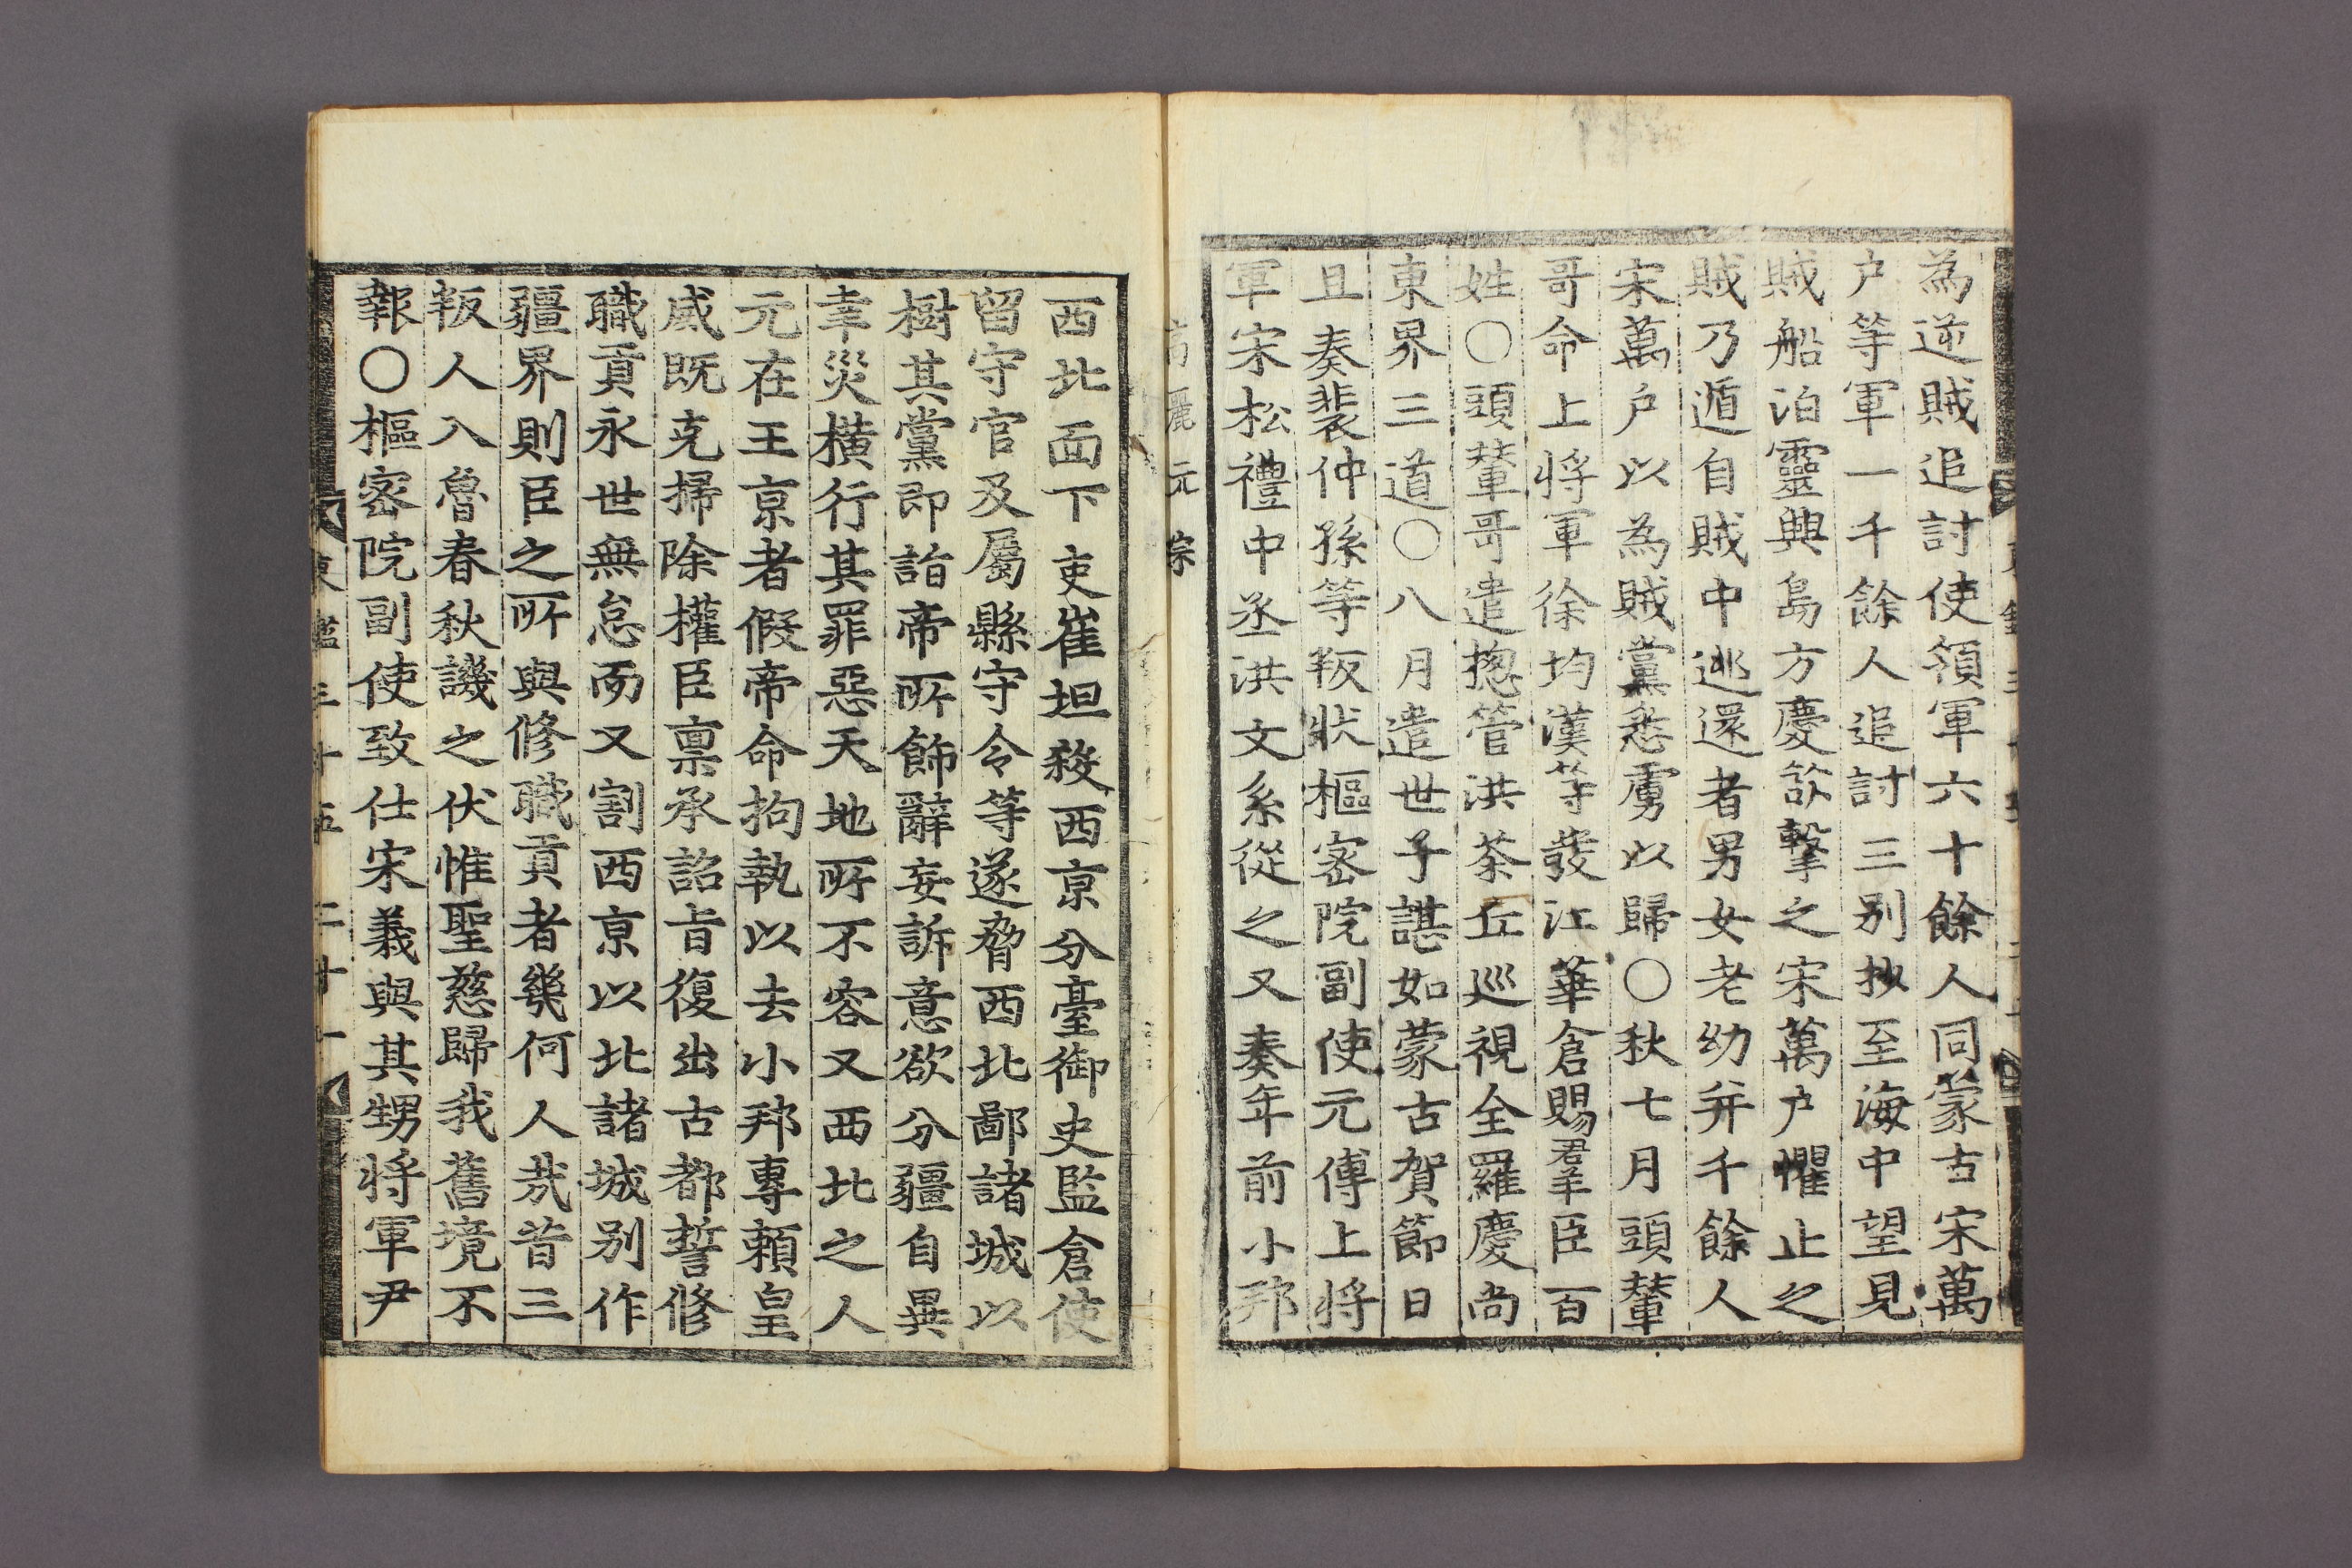 為逆賊追討使領軍六十餘人同蒙古宋萬
户等軍一千餘人追討三别抄至海中望見
賊船泊靈興島方慶欲擊之宋萬户懼止之
賊乃遁自賊中逃還者男女老幼并千餘人
宋萬户以為賊黨悉虜以歸〇秋七月頭輦
哥命上将軍徐均漢等發江華倉賜羣臣百
姓〇頭輦哥遣揔管洪茶丘巡視全羅慶尚
東界三道〇八月遣世子諶如蒙古賀節日
且奏裴仲孫等叛狀樞密院副使元傅上将
軍宋松禮中丞洪文系從之又奏年前小邦
高麗元宗
西北面下吏崔坦殺西京分臺御史監倉使
留守官及屬縣守令等遂脅西北鄙諸城以
樹其黨即詣帝所飾辭妄訴意欲分疆自異
幸災橫行其罪惡天地所不容又西北之人
元在王京者假帝命拘執以去小邦專賴皇
威既克掃除權臣禀承詔旨復出古都誓修
職貢永世無怠而又割西京以北諸城别作
疆界則臣之所與修職貢者幾何人㢤昔三
叛人入魯春秋譏之伏惟聖慈歸我舊境不
報〇樞密院副使致仕宋義與其甥将軍尹
東鑑三十五 二十一